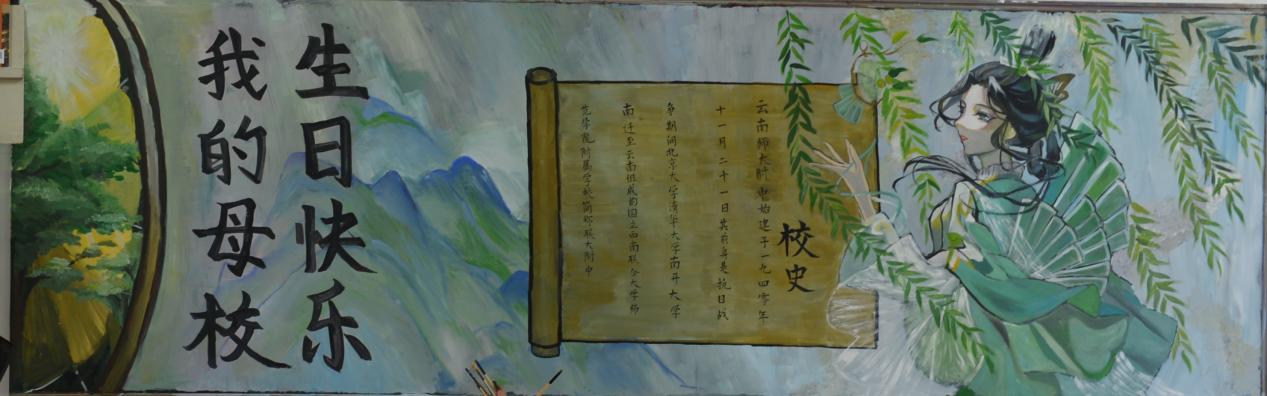 生日快乐
我的母校
校史
云南师大附中始建于一九四零年
十一月二十一日其前身是抗日战
争期间北京大学清华大学南开大学
南迁至云南组成的国立西南联合大学师
范学院附属学校简称联大附中